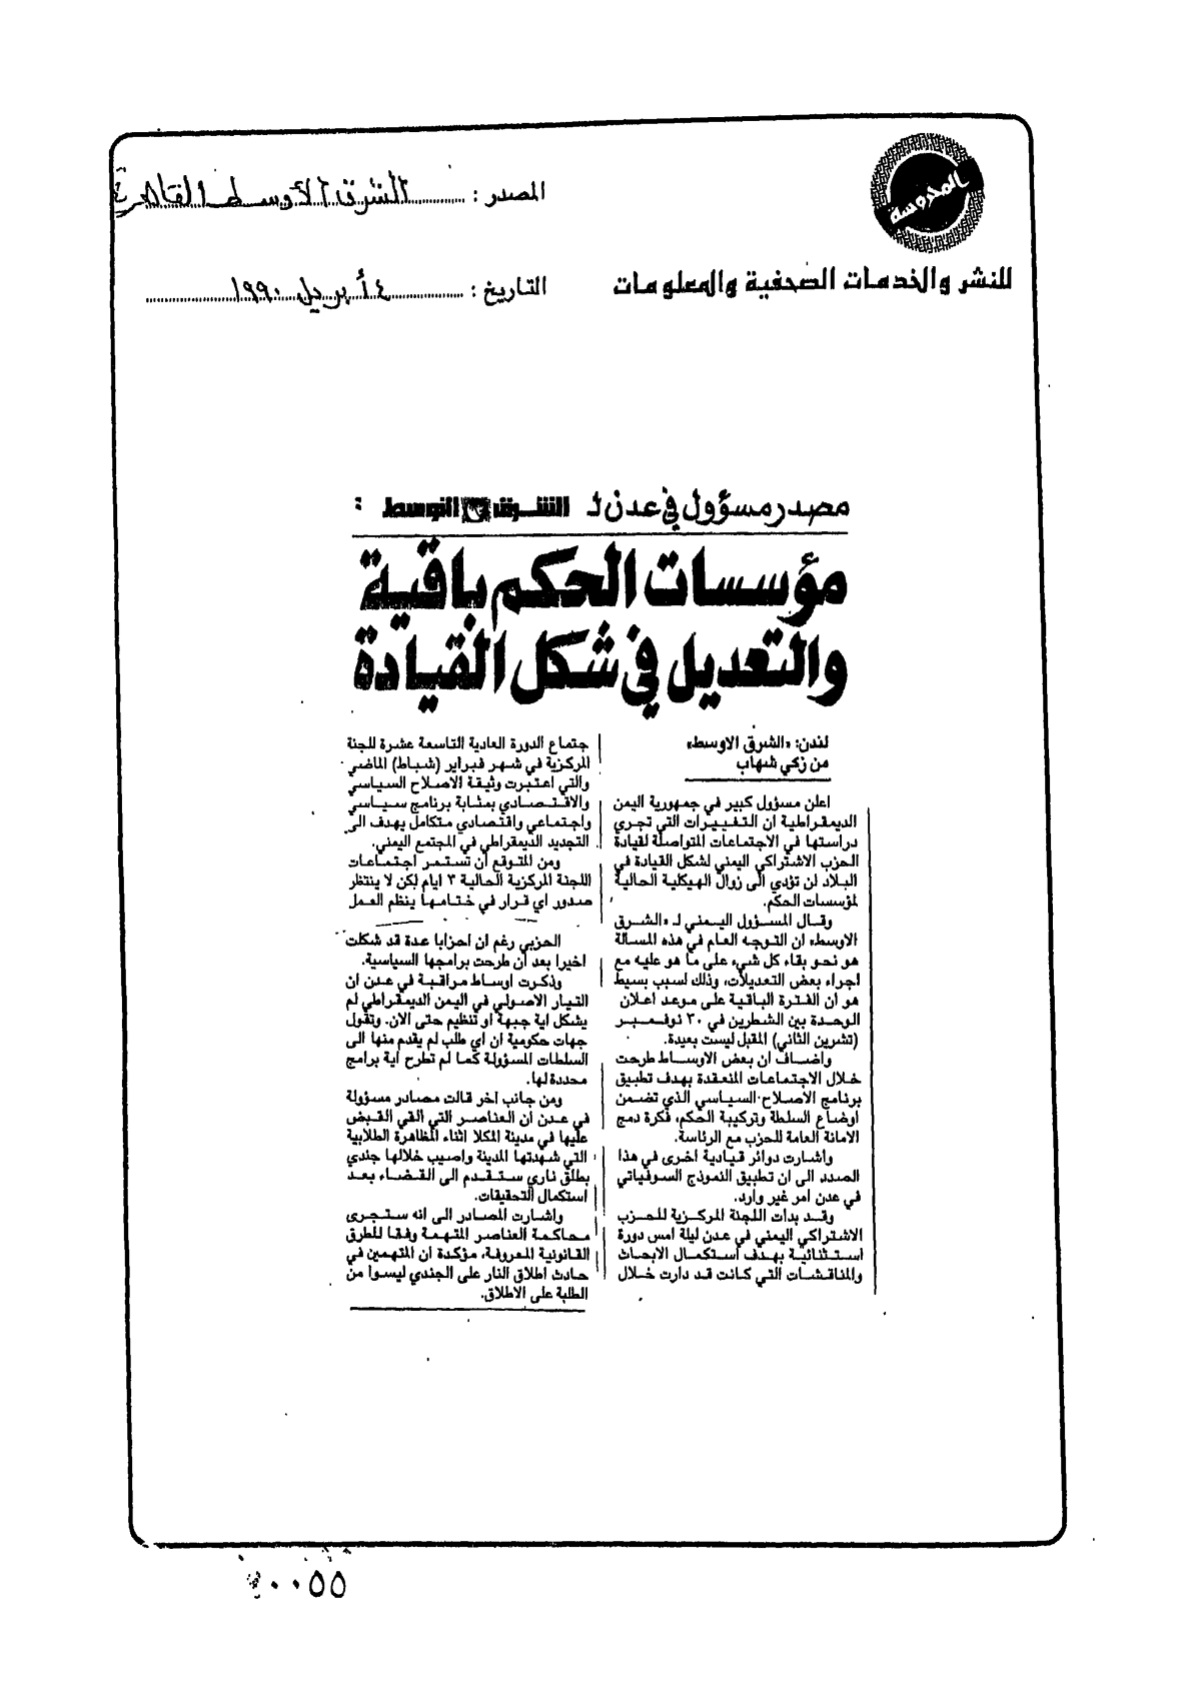 المحروسة
للنشر والخدمات الصحفية والمعلومات
المصدر : الشرق الأوسط القاهرية
التاريخ : ٤ أبريل ١٩٩٠
مصدر مسؤول في عدن لـ الشرق الاوسط :
مؤسسات الحكم باقية
والتعديل في شكل القيادة
لندن: «الشرق الاوسط»
من زكي شهاب
اعلن مسؤول كبير في جمهورية اليمن
الديمقراطية ان التغييرات التي تجري
دراستها في الاجتماعات المتواصلة لقيادة
الحزب الاشتراكي اليمني لشكل القيادة في
البلاد لن تؤدي الى زوال الهيكلية الحالية
لمؤسسات الحكم.
وقال المسؤول اليمني لـ «الشرق
الاوسط» ان التوجه العام في هذه المسالة
هو نحو بقاء كل شيء على ما هو عليه مع
اجراء بعض التعديلات، وذلك لسبب بسيط
هو ان الفترة الباقية على موعد اعلان
الوحدة بين الشطرين في ٣٠ نوفمبر
(تشرين الثاني) المقبل ليست بعيدة.
واضاف ان بعض الاوساط طرحت
خلال الاجتماعات المنعقدة بهدف تطبيق
برنامج الاصلاح السياسي الذي تضمن
اوضاع السلطة وتركيبة الحكم، فكرة دمج
الامانة العامة للحزب مع الرئاسة.
واشارت دوائر قيادية اخرى في هذا
الصدد الى ان تطبيق النموذج السوفياتي
في عدن امر غير وارد.
وقد بدات اللجنة المركزية للحزب
الاشتراكي اليمني في عدن ليلة امس دورة
استثنائية بهدف استكمال الابحاث
والمناقشات التي كانت قد دارت خلال
جتماع الدورة العادية التاسعة عشرة للجنة
المركزية في شهر فبراير (شباط) الماضي
والتي اعتبرت وثيقة الاصلاح السياسي
والاقتصادي بمثابة برنامج سياسي
واجتماعي واقتصادي متكامل يهدف الى
التجديد الديمقراطي في المجتمع اليمني.
ومن المتوقع ان تستمر اجتماعات
اللجنة المركزية الحالية ٣ ايام لكن لا ينتظر
صدور اي قرار في ختامها ينظم العمل
الحزبي رغم ان احزابا عدة قد شكلت
اخيرا بعد أن طرحت برامجها السياسية.
وذكرت اوساط مراقبة في عدن ان
التيار الاصولي في اليمن الديمقراطي لم
يشكل اية جبهة او تنظيم حتى الان. وتقول
جهات حكومية ان اي طلب لم يقدم منها الى
السلطات المسؤولة كما لم تطرح اية برامج
محددة لها.
ومن جانب اخر قالت مصادر مسؤولة
في عدن ان العناصر التي القي القبض
عليها في مدينة المكلا اثناء المظاهرة الطلابية
التي شهدتها المدينة واصيب خلالها جندي
بطلق ناري ستقدم الى القضاء بعد
استكمال التحقيقات.
واشارت المصادر الى انه ستجرى
محاكمة العناصر المتهمة وفقا للطرق
القانونية المعروفة، مؤكدة ان المتهمين في
حادث اطلاق النار على الجندي ليسوا من
الطلبة على الاطلاق.
٠٠٥٥